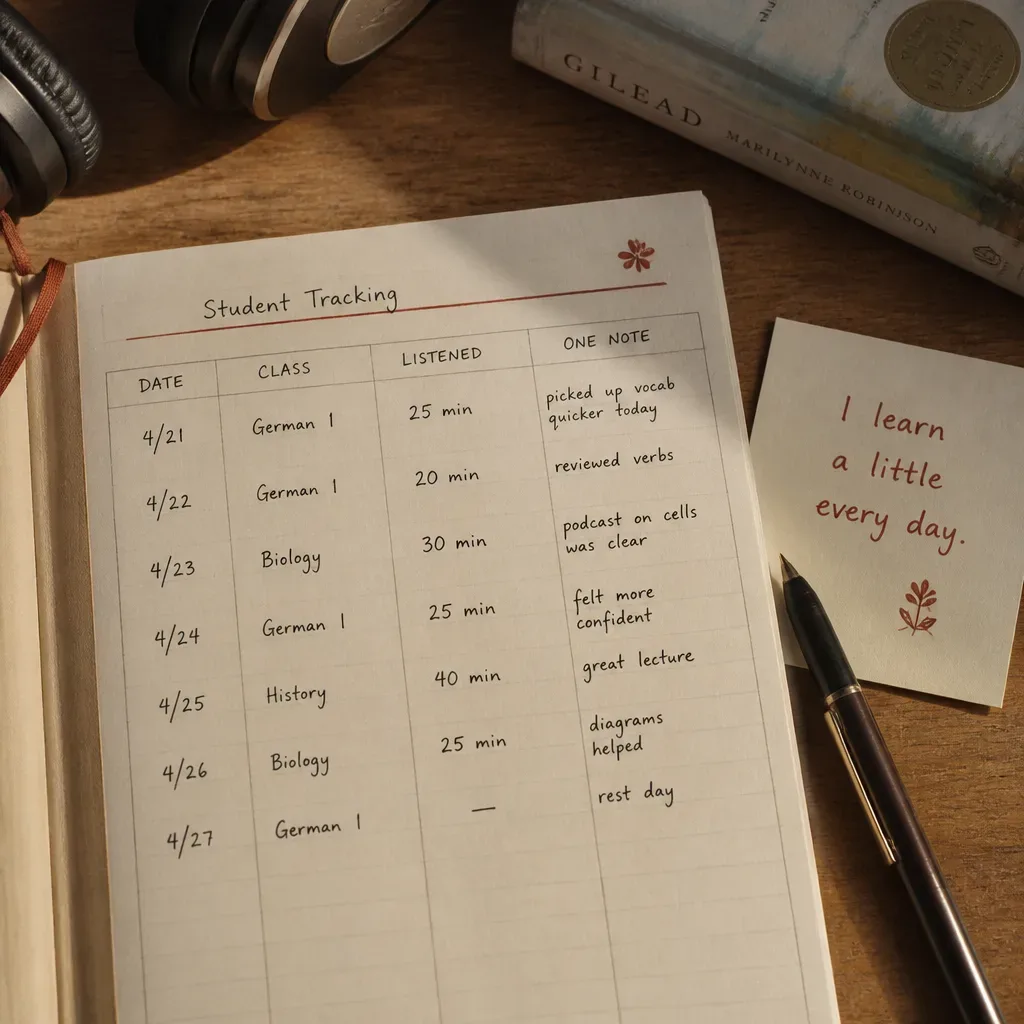 GILEAD
MARILYNNE ROBINSON
Student Tracking
DATE CLASS LISTENED ONE NOTE
4/21 German 1 25 min picked up vocab
quicker today
4/22 German 1 20 min reviewed verbs
4/23 Biology 30 min podcast on cells
was clear
4/24 German 1 25 min felt more
confident
4/25 History 40 min great lecture
4/26 Biology 25 min diagrams
helped
4/27 German 1 — rest day
I learn
a little
every day.